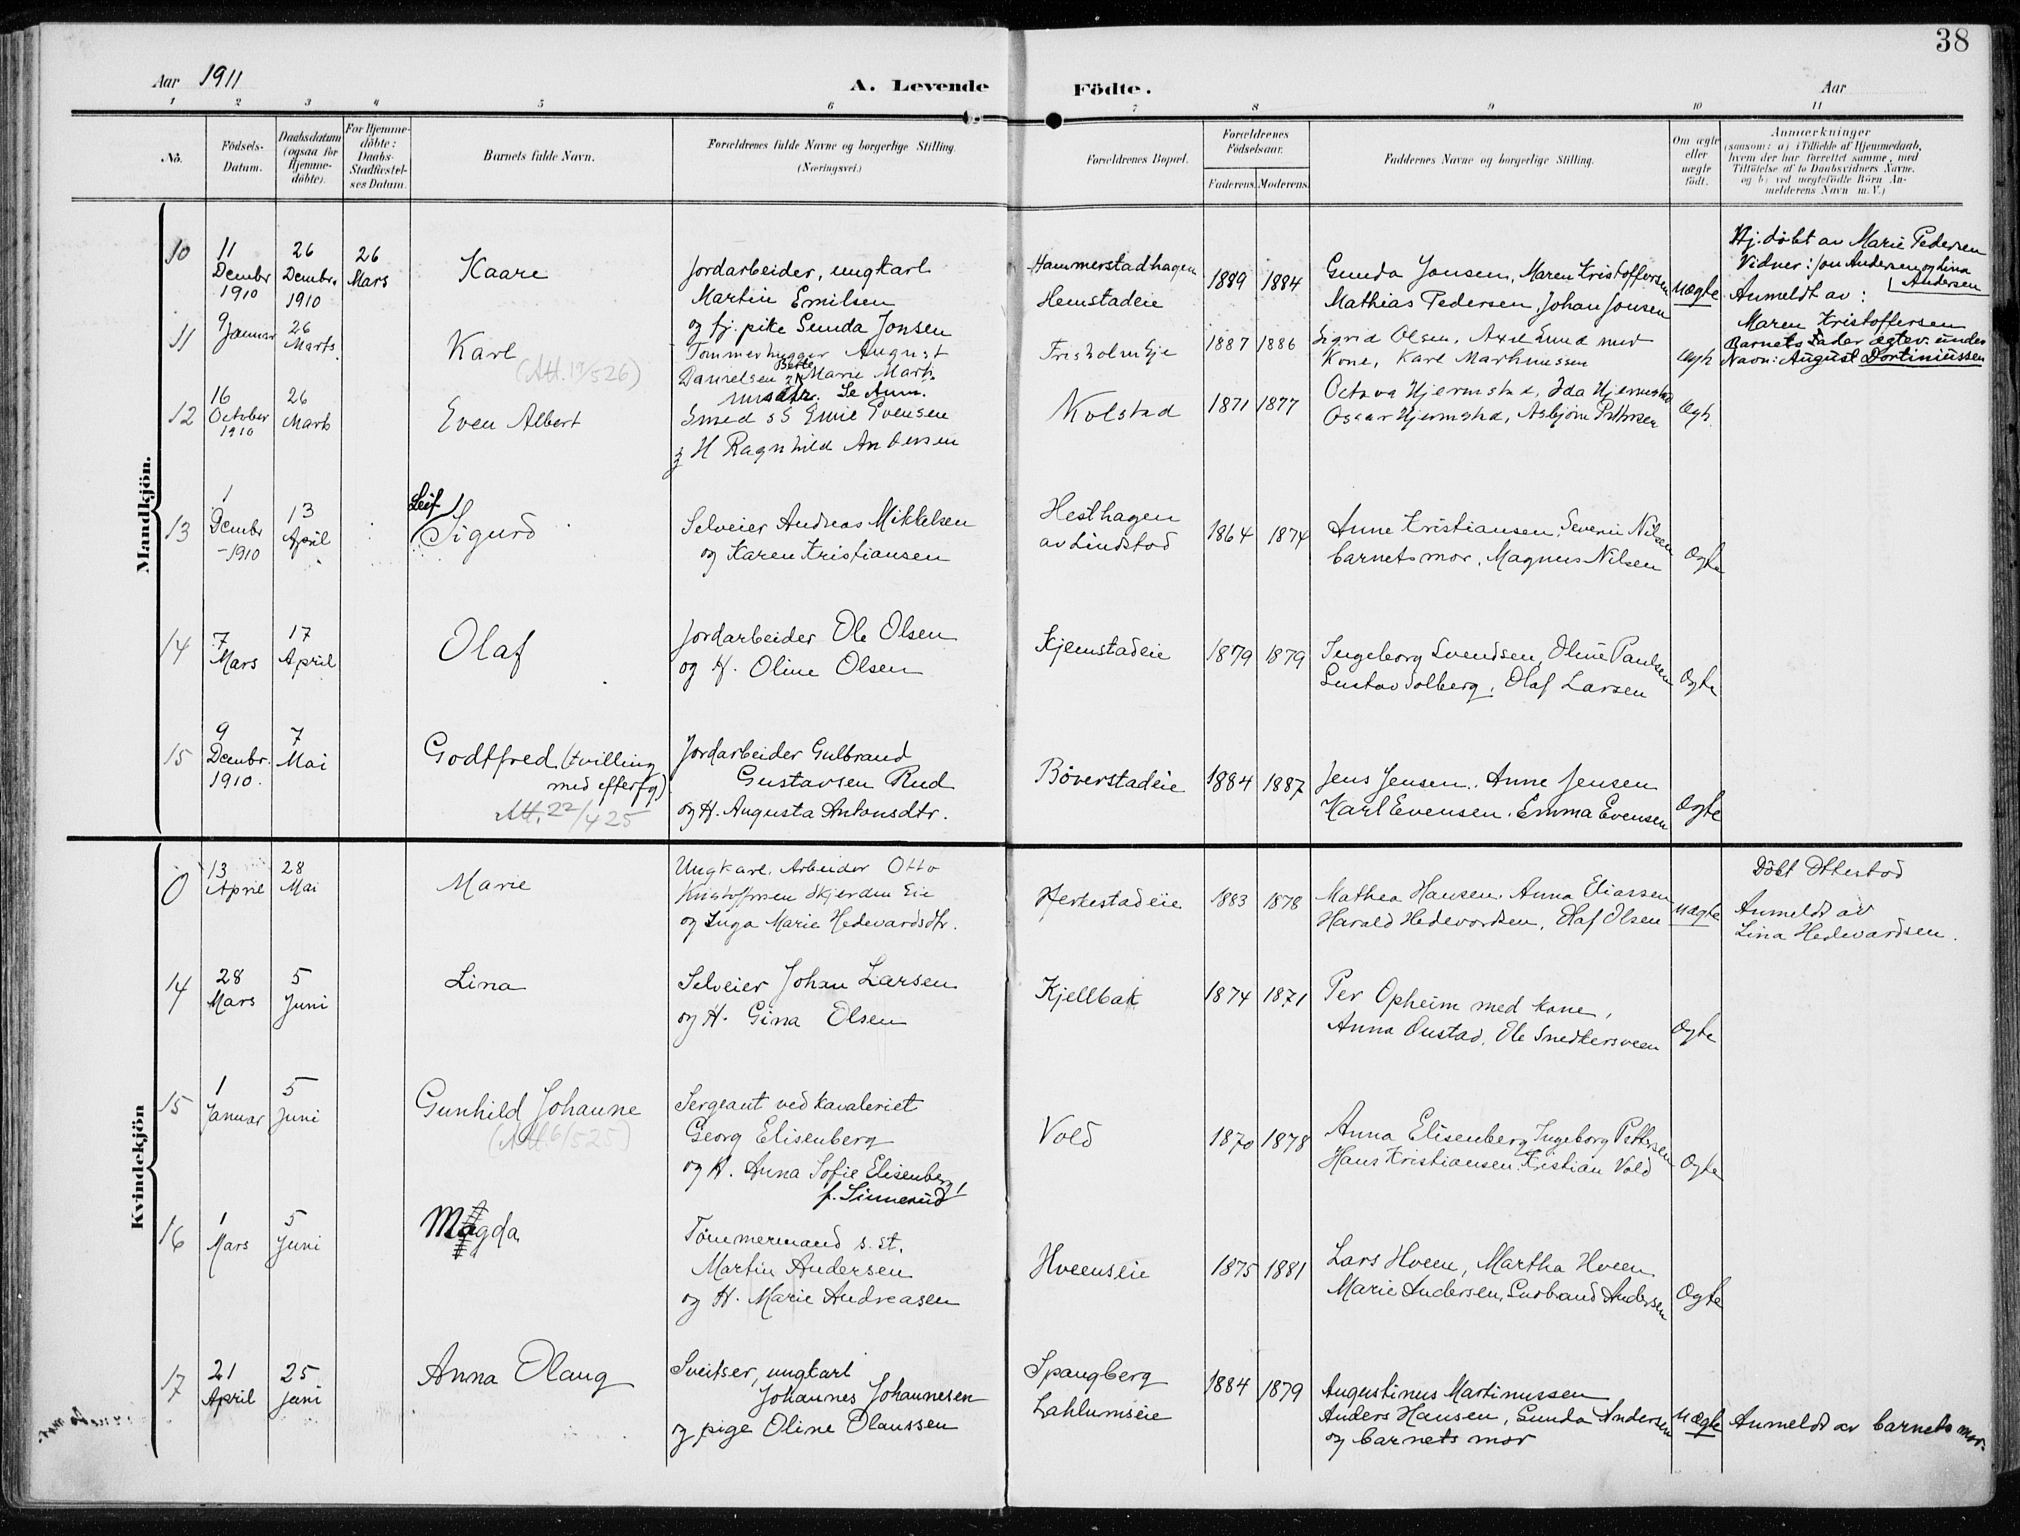 38
Aar 1911
A. Levende Födte.
Aar
1 2 3 4 5 6 7 8 9 10 11
No.
Födsels-
Datum.
Daabsdatum
(ogsaa for
Hjemme-
döbte).
For Hjemme-
döbte:
Daabs-
Stadfæstel-
ses Datum.
Barnets fulde Navn.
Forældrenes fulde Navne og borgerlige Stilling.
(Næringsvei.)
Forældrenes Bopæl.
Forældrenes
Födselsaar.
Faderens. Moderens.
Faddernes Navne og borgerlige Stilling.
Om ægte
eller
uægte
födt.
Anmærkninger
(saasom: a) i Tilfælde af Hjemmedaab,
hvem der har forrettet samme, med
Tilföielse af to Daabsvidners Navne.
og b) ved uægtefödte Börn An-
melderens Navn m. V.)
Mandkjön.
10
11
Dembr
1910
26
Dembr.
1910
26
Mars
Kaare
Jordarbeider, ungkarl
Martin Emilsen
og fj. pike Gunda Jonsen
Hammerstadhagen
Hemstadeie
1889 1884
Gunda Jonsen, Maren Kristoffersen
Mathias Pedersen, Johan Jonsen
Uægte
Hj. döbt av Marie Pedersen
Vidner: Jon Andersen og Lina
Andersen
Anmeldt av:
Maren Kristoffersen
11
9
Januar
26
Marts
Karl
(Att. 19/526)
Tømmerhugger August
Danielsen Marie
Berte
1887 1886
Sigrid Olsen, Axel Lund med
Kone, Karl Markussen
Ægte
Barnets Fader ægtev. under
Navn: August Dortiniussen
12
16
October
1910
26
Marts
Even Albert
Smed SS Emil Evensen
H Ragnhild Andersen
Kolstad
1871 1877
Octava Hjermstad, Ida Hjermstad
Oscar Hjermstad, Asbjørn Pettersen
Ægt.
13
1
Dembr
-1910
13
April
Leif
Sigurd
Selveier Andreas Mikkelsen
og Karen Kristiansen
Hesthagen
av Lindstad
1864 1874
Anne Kristiansen, Severin Nilsen
barnets mor, Magnus Nilsen
Ægte
14
7
Mars
17
April
Olaf
Jordarbeider Ole Olsen
og H. Oline Olsen
Kjemstadeie
1879 1879
Ingeborg Svendsen, Oline Paulsen
Gustav Solberg, Olaf Larsen
Ægte
15
9
Dembr.
1910.
7
Mai
Godtfred (tvilling
med efterfg)
Att. 22/425
Jordarbeider Gulbrand
Gustavsen Rud
og H. Augusta Antonsdtr.
Böverstadeie
1884 1887
Jens Jensen. Anne Jensen
Karl Evensen. Emma Evensen
Ægte
Kvindekjön
13
April
28
Mai
Marie
Ungkarl, Arbeider Otto
Kristoffersen Skjerden Eie
og Inga Marie Hedevardsdtr.
Herkestadeie
1883 1878
Mathea Hansen, Anna Eliassen
Harald Hedevardsen, Olaf Olsen
Uægte
Döbt Ottestad
Anmeldt av
Lina Hedevardsen.
14
28
Mars
5
Juni
Lina
Selveier Johan Larsen
og H. Gina Olsen
Kjellbak
1874 1871
Per Opheim med kone,
Anna Onstad, Ole Snedkersveen
Ægte
15
1
Januar
5
Juni
Gunhild Johanne
(Att. 6/525)
Sergeant ved kavaleriet
Georg Elisenberg
og H. Anna Sofie Elisenberg
f. Sinnerud
Vold
1870 1878
Anna Elisenberg, Ingeborg Pettersen
Hans Kristiansen. Kristian Vold
Ægte
16
1
Mars
5
Juni
Magda
Tømmermand s. st.
Martin Andersen
og H. Marie Andreasen
Hveenseie
1875 1881
Lars Hveen, Martha Hveen
Marie Andersen, Gulbrand Andersen
Ægte
17
21
April
25
Juni
Anna Olaug
Sveitser, ungkarl
Johannes Johannesen
og pige Oline Olaussen
Spangberg
Lahlumseie
1884 1879
Augustinus Martinussen
Anders Hansen, Gunda Andersen
og barnets mor
Uægte
Anmeldt av barnets mor.